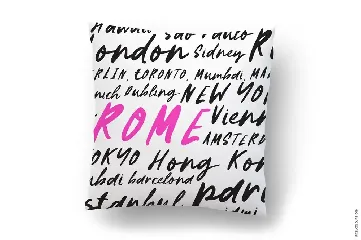 Hawaii Sao Paulo
London Sidney R
BERLIN, TORONTO, Mumbai, MA
nich Dubling NEW YO
ROME Vienn
AMSTERD
TOKYO Hong Kon
mbai barcelona
stanbul pari